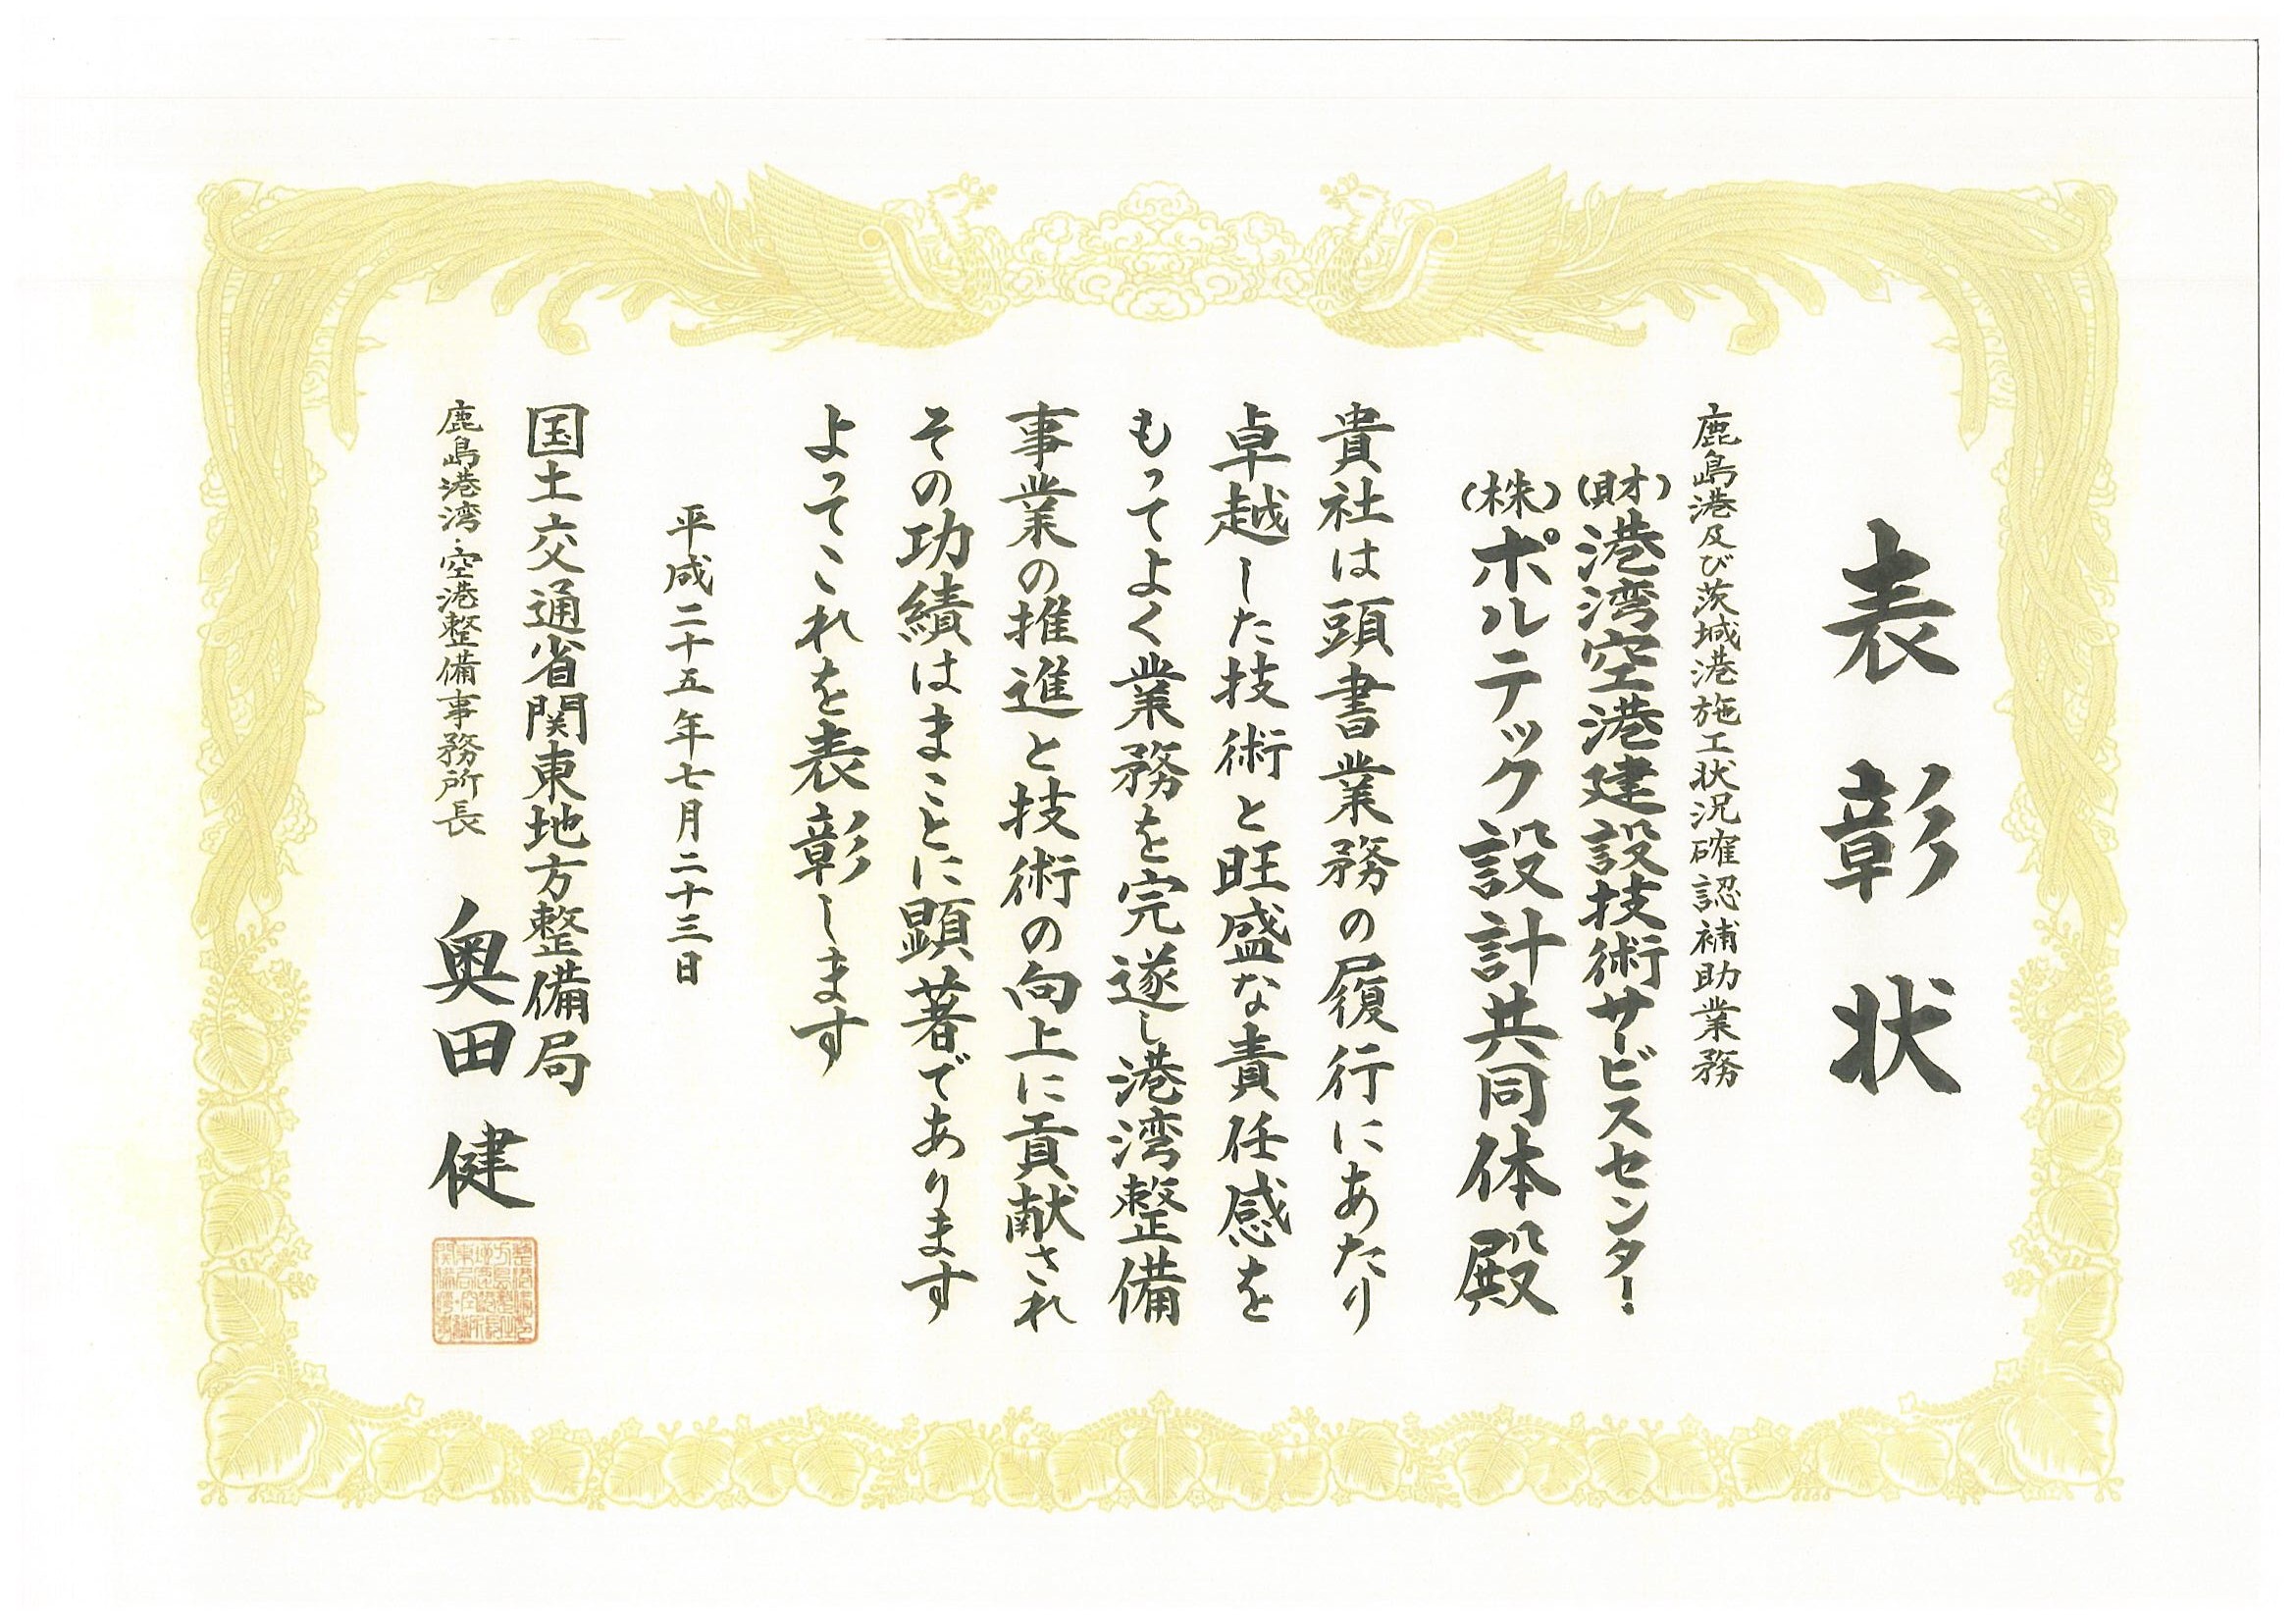 表彰状
鹿島港及び茨城港施工状況確認補助業務
(財)港湾空港建設技術サービスセンター
(株)ポルテック設計共同体殿
貴社は頭書業務の履行にあたり
卓越した技術と旺盛な責任感を
もってよく業務を完遂し港湾整備
事業の推進と技術の向上に貢献され
その功績はまことに顕著であります
よってこれを表彰します
平成二十五年七月二十三日
国土交通省関東地方整備局
鹿島港湾・空港整備事務所長 奥田健